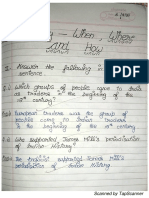 - When, Where
and How
1. Answer the following in
sentence
Q.1 Which groups of people came to India
as traders in the beginning of the
18th century?
European traders was the group of
people came to Indian traders
in the beginning of the 18th century.
Q.2 Who supported James Mill's periodisation
of Indian History?
The British supported James Mill's
periodisation of Indian History
Scanned by TapScanner